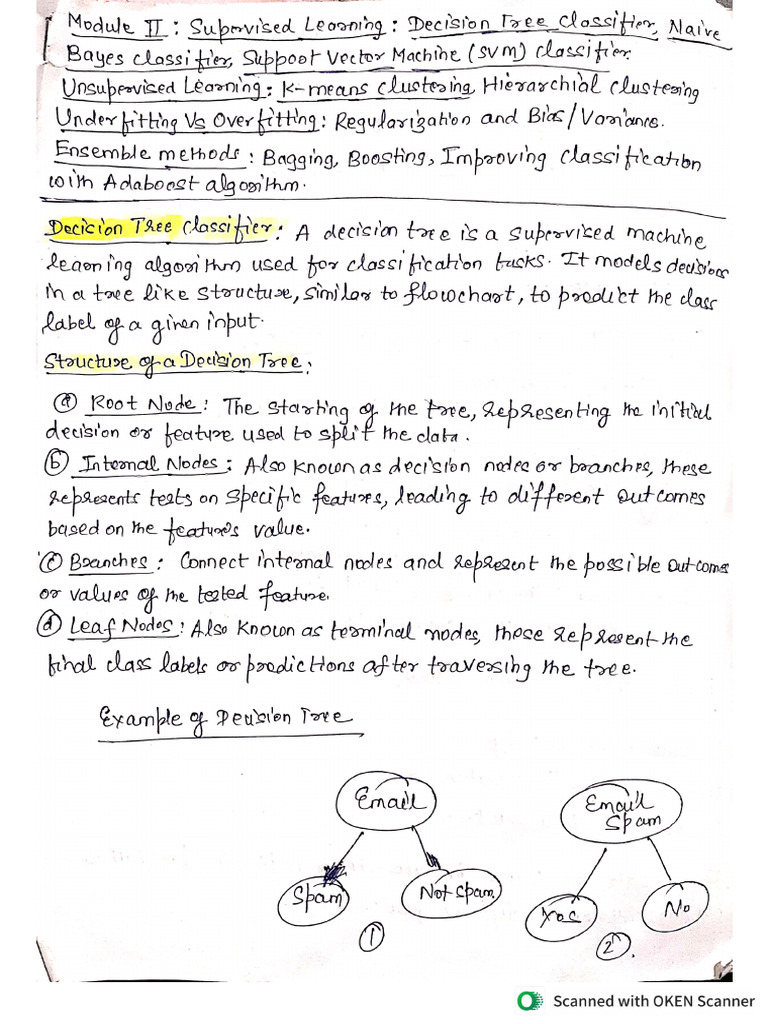 Module II : Supervised Learning : Decision Tree Classifier, Naive
Bayes classifier, Support Vector Machine (SVM) classifier.
Unsupervised Learning : K-means clustering, Hierarchial clustering
Underfitting Vs Overfitting : Regularization and Bias/Variance.
Ensemble methods : Bagging, Boosting, Improving classification
with Adaboost algorithm.
Decision Tree Classifier : A decision tree is a supervised machine
learning algorithm used for classification tasks. It models decision
in a tree like structure, similar to flowchart, to predict the class
label of a given input.
Structure of a Decision Tree :
(a) Root Node : The starting of the tree, representing the initial
decision or feature used to split the data.
(b) Internal Nodes : Also known as decision nodes or branches, these
represents tests on specific features, leading to different outcomes
based on the feature's value.
(c) Branches : Connect internal nodes and represent the possible outcomes
or values of the tested feature.
(d) Leaf Nodes : Also known as terminal nodes, these represent the
final class labels or predictions after traversing the tree.
Example of Decision Tree
Email
Spam
Not Spam
1
Email
Spam
Yes
No
2
Scanned with OKEN Scanner